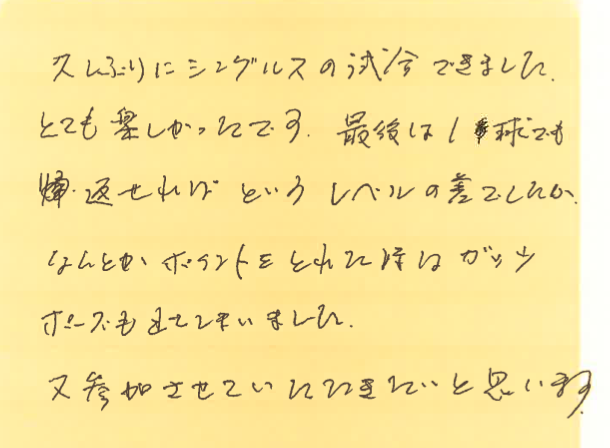 久しぶりにシングルスの試合できました。
とても楽しかったです。最後は1球でも
返せれば というレベルの差でしたが、
なんとかポイントをとれた時はガッツ
ポーズも出てしまいました。
又参加させていただきたいと思います。